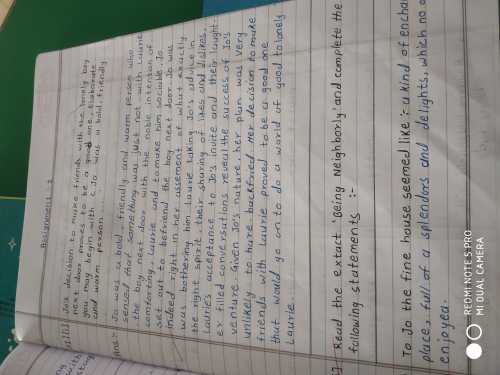 Assignment :- 2
Jo's decision to make friends with the lonely boy
next door proves to be a good one. Elaborate
you may begin with :- Jo was a bold, friendly
and warm person
Ans: Jo was a bold, friendly and warm person who
sensed that something was just not right with Laurie
the boy next door. With the noble intention of
comforting Laurie and to make him sociable Jo
set out to befriend the boy next door. Jo was
indeed right in her assement of what exactly
was bothering him Laurie taking Jo's advice in
the right spirit, their sharing of likes and dislikes,
Laurie's acceptance to Jo's invite and their laught
er filled conversations, reveal the success of Jo's
venture Given Jo's nature, her plan was very
unlikely to have backfired Her decision to make
friends with Laurie proved to be a good one
that would go on to do a world of good to lonely
Laurie.
Read the extact 'Being Neighborly' and complete the
following statements :-
To Jo the fine house seemed like :- a kind of enchan
place, full of a splendors and delights, which no o
enjoyed.
REDMI NOTE 5 PRO
MI DUAL CAMERA